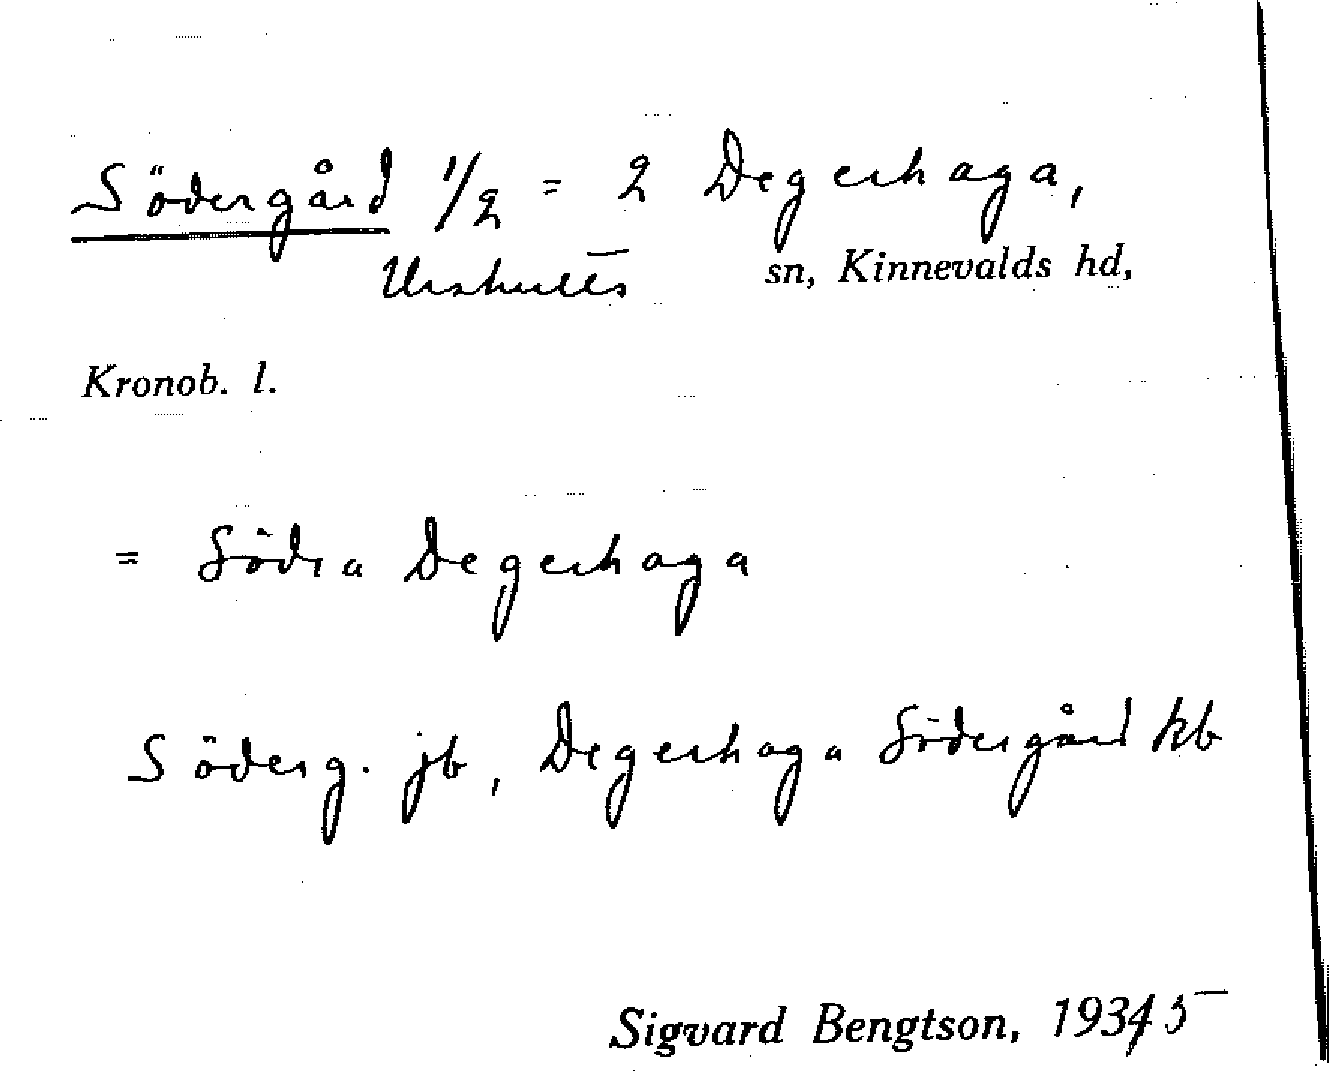 Södergård 1/2 = 2 Degerhaga,
Urshults sn, Kinnevalds hd,
Kronob. l.
= Södra Degerhaga
Söderg. jb, Degerhaga Södergård kb
Sigvard Bengtson, 1935